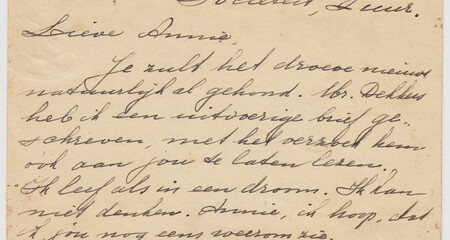 Lieve Annie,
Je zult het droeve nieuws
natuurlijk al gehoord. Mr. Dekkers
heb ik een uitvoerige brief ge-
schreven, met het verzoek hem
ook aan jou te laten lezen.
Ik leef als in een droom. Ik kan
niet denken. Annie, ik hoop, dat
ik jou nog eens weerom zie.